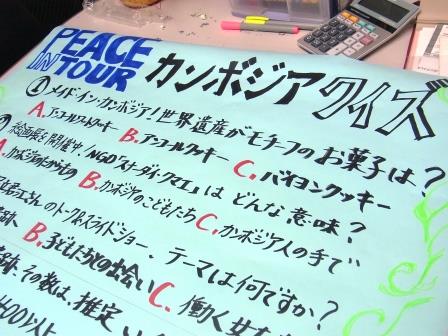 PEACE
IN TOUR
カンボジアクイズ
① メイド・イン・カンボジア！世界遺産がモチーフのお菓子は？
A. アンコールワットクッキー B. アンコールクッキー C. バイヨンクッキー
絵画展も開催中！NGO『スナーダイ・クマエ』はどんな意味？
A. カンボジアのたからもの B. カンボジアのこどもたち C. カンボジア人の手で
さんのトーク&スライドショー、テーマは何ですか？
B. 子どもたちとの出会い C. 働く女
その数は、推定